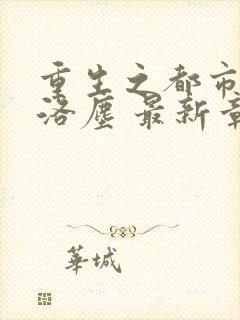 重生之都市
洛塵 最新章
華城